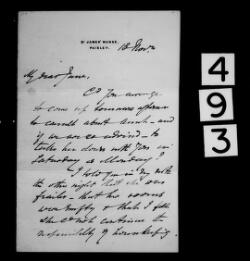 St JAMES' MANSE,
PAISLEY.
18 Novr
My dear Jane,
Cd you arrange
to come up tomorrow afternoon
to consult about Aunt - and
if we are so advised - to
take her down with you on
Saturday or Monday?
I told you in my note
the other night that she was
frailer - that her rooms
were and that I felt
she cd not continue the
responsibility of housekeeping
4
9
3